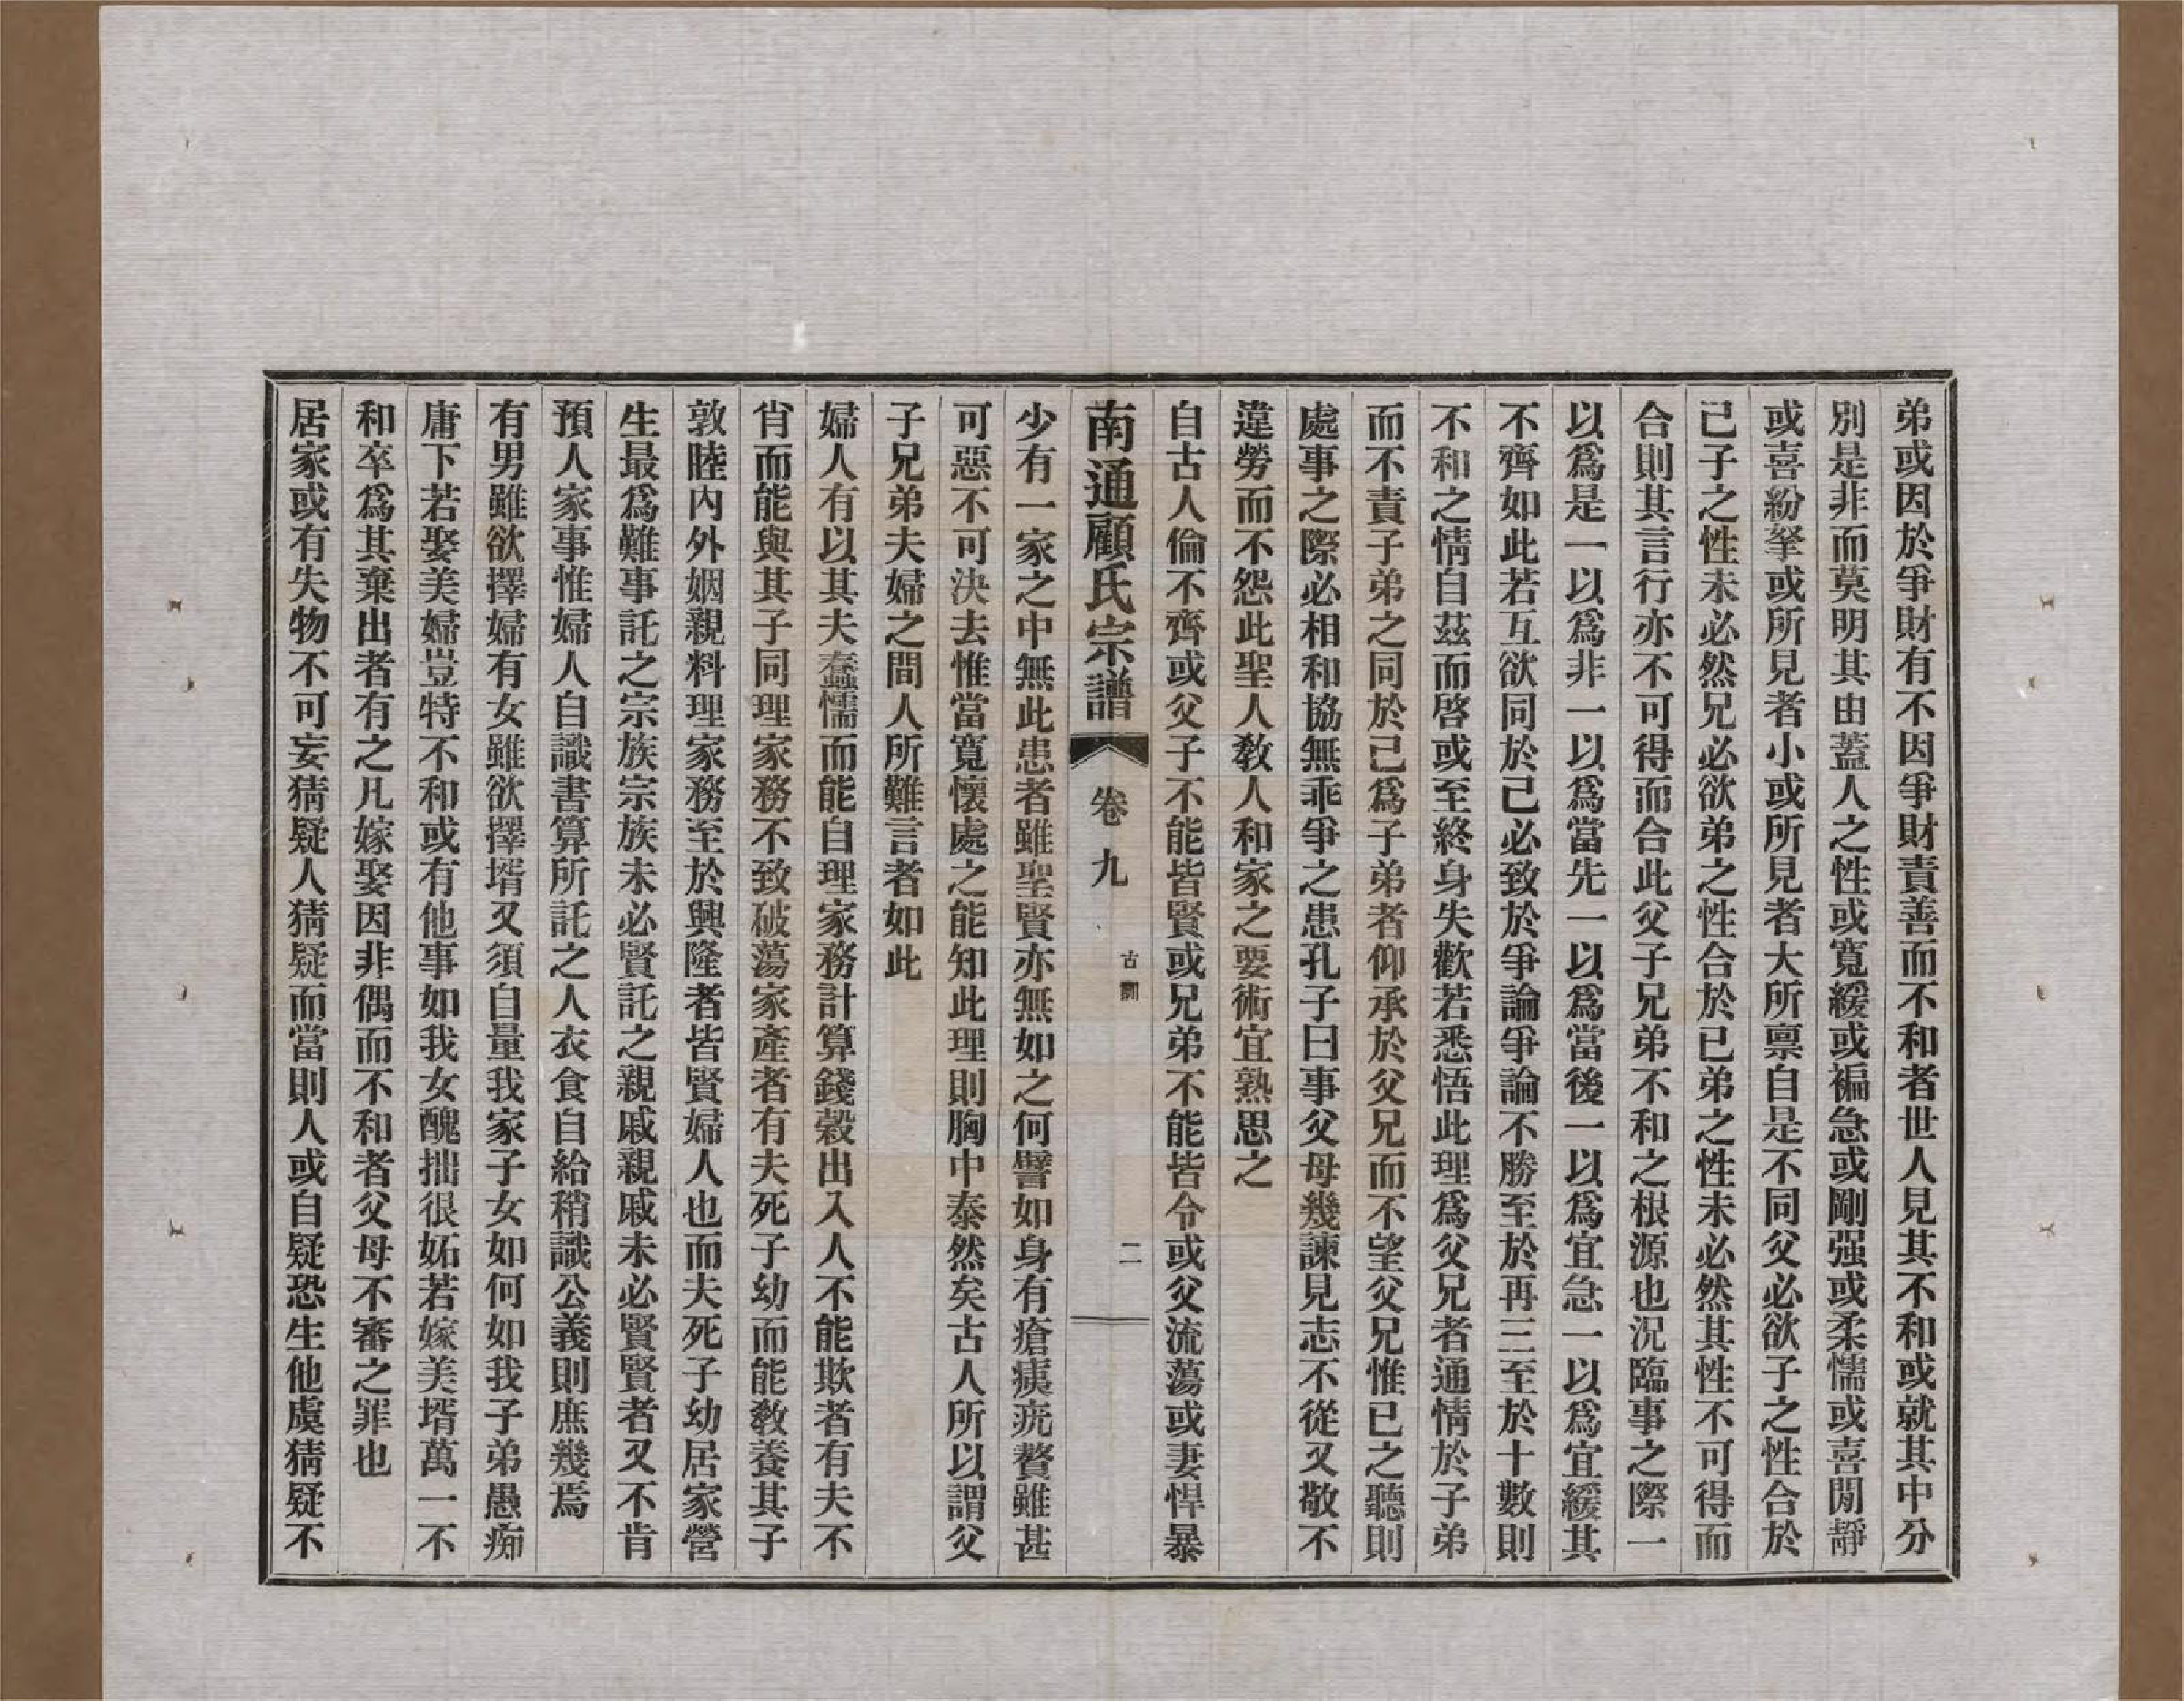 弟或因於爭財有不因爭財責善而不和者世人見其不和或就其中分
別是非而莫明其由蓋人之性或寬緩或褊急或剛强或柔懦或喜閒靜
或喜紛拏或所見者小或所見者大所禀自是不同父必欲子之性合於
己子之性未必然兄必欲弟之性合於已弟之性未必然其性不可得而
合則其言行亦不可得而合此父子兄弟不和之根源也況臨事之際一
以爲是一以爲非一以爲當先一以爲當後一以爲宜急一以爲宜緩其
不齊如此若互欲同於己必致於爭論爭論不勝至於再三至於十數則
不和之情自茲而啓或至終身失歡若悉悟此理爲父兄者通情於子弟
而不責子弟之同於己爲子弟者仰承於父兄而不望父兄惟已之聽則
處事之際必相和協無乖爭之患孔子曰事父母幾諫見志不從又敬不
違勞而不怨此聖人敎人和家之要術宜熟思之
自古人倫不齊或父子不能皆賢或兄弟不能皆令或父流蕩或妻悍暴
南通顧氏宗譜 卷九 古 二
少有一家之中無此患者雖聖賢亦無如之何譬如身有瘡痍疣贅雖甚
可惡不可決去惟當寬懷處之能知此理則胸中泰然矣古人所以謂父
子兄弟夫婦之間人所難言者如此
婦人有以其夫蠢懦而能自理家務計算錢穀出入人不能欺者有夫不
肖而能與其子同理家務不致破蕩家產者有夫死子幼而能敎養其子
敦睦內外姻親料理家務至於興隆者皆賢婦人也而夫死子幼居家營
生最爲難事託之宗族宗族未必賢託之親戚親戚未必賢賢者又不肯
預人家事惟婦人自識書算所託之人衣食自給稍識公義則庶幾焉
有男雖欲擇婦有女雖欲擇壻又須自量我家子女如何如我子弟愚痴
庸下若娶美婦豈特不和或有他事如我女醜拙很妬若嫁美壻萬一不
和卒爲其棄出者有之凡嫁娶因非偶而不和者父母不審之罪也
居家或有失物不可妄猜疑人猜疑而當則人或自疑恐生他虞猜疑不